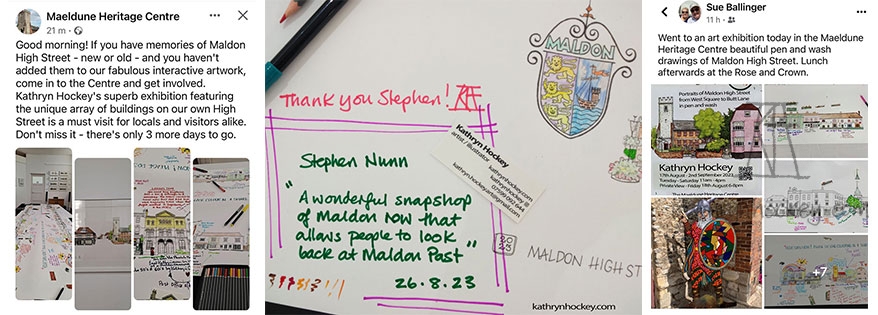 Maeldune Heritage Centre
21 m
Good morning! If you have memories of Maldon
High Street - new or old - and you haven't
added them to our fabulous interactive artwork,
come in to the Centre and get involved.
Kathryn Hockey's superb exhibition featuring
the unique array of buildings on our own High
Street is a must visit for locals and visitors alike.
Don't miss it - there's only 3 more days to go.
MALDON
Thank you Stephen!
Stephen Nunn
"A wonderful snapshot
of Maldon now that
allows people to look
back at Maldon Past"
26.8.23
Kathryn Hockey
artist / illustrator
kathrynhockey.com
kathrynhockey@gmail.com
MALDON HIGH ST
kathrynhockey.com
Sue Ballinger
11 h
Went to an art exhibition today in the Maeldune
Heritage Centre beautiful pen and wash
drawings of Maldon High Street. Lunch
afterwards at the Rose and Crown.
Portraits of Maldon High Street
from West Square to Butt Lane
in pen and wash
Kathryn Hockey
17th August - 2nd September 2023
Tuesday - Saturday 11am - 4pm
Private View - Friday 18th August 6-8pm
The Maeldune Heritage Centre
+7